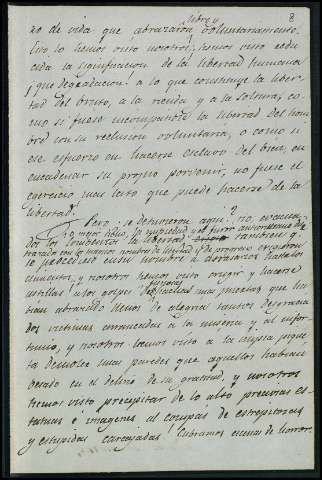 8
libre y
no de vida que abrazaron voluntariamente.
Eso lo hemos visto nosotros; hemos visto redu
cida la significacion de la libertad humana
¡que degradacion! a lo que constituye la liber
tad del bruto, a la rienda y a la soltura, co
mo si fuese incompatible la libertad del hom
bre con su reclusion voluntaria, o como si
ese esfuerzo en hacerse esclavo del bien, en
encadenar su propio porvenir, no fuese el
ejercicio mas que puede hacerse de la
libertad.
Pero ¿se detuvieron aqui? no,
dos los conventos la libertad
nosotros hemos visto crugir y hacerse
astillas a los golpes del
bian abrazado llenos de alegria tantos desgracia
dos victimas arrancadas a la miseria y al infor
tunio, y nosotros hemos visto a la impia pique
ta demoler unas paredes que aquellos habian
besado en el delirio de su gratitud, y nosotros
hemos visto precipitar de lo alto preciosas es
tatuas e imagenes al compas de estrepitosas
y estupidas carcajadas! Cubramos escenas de horror